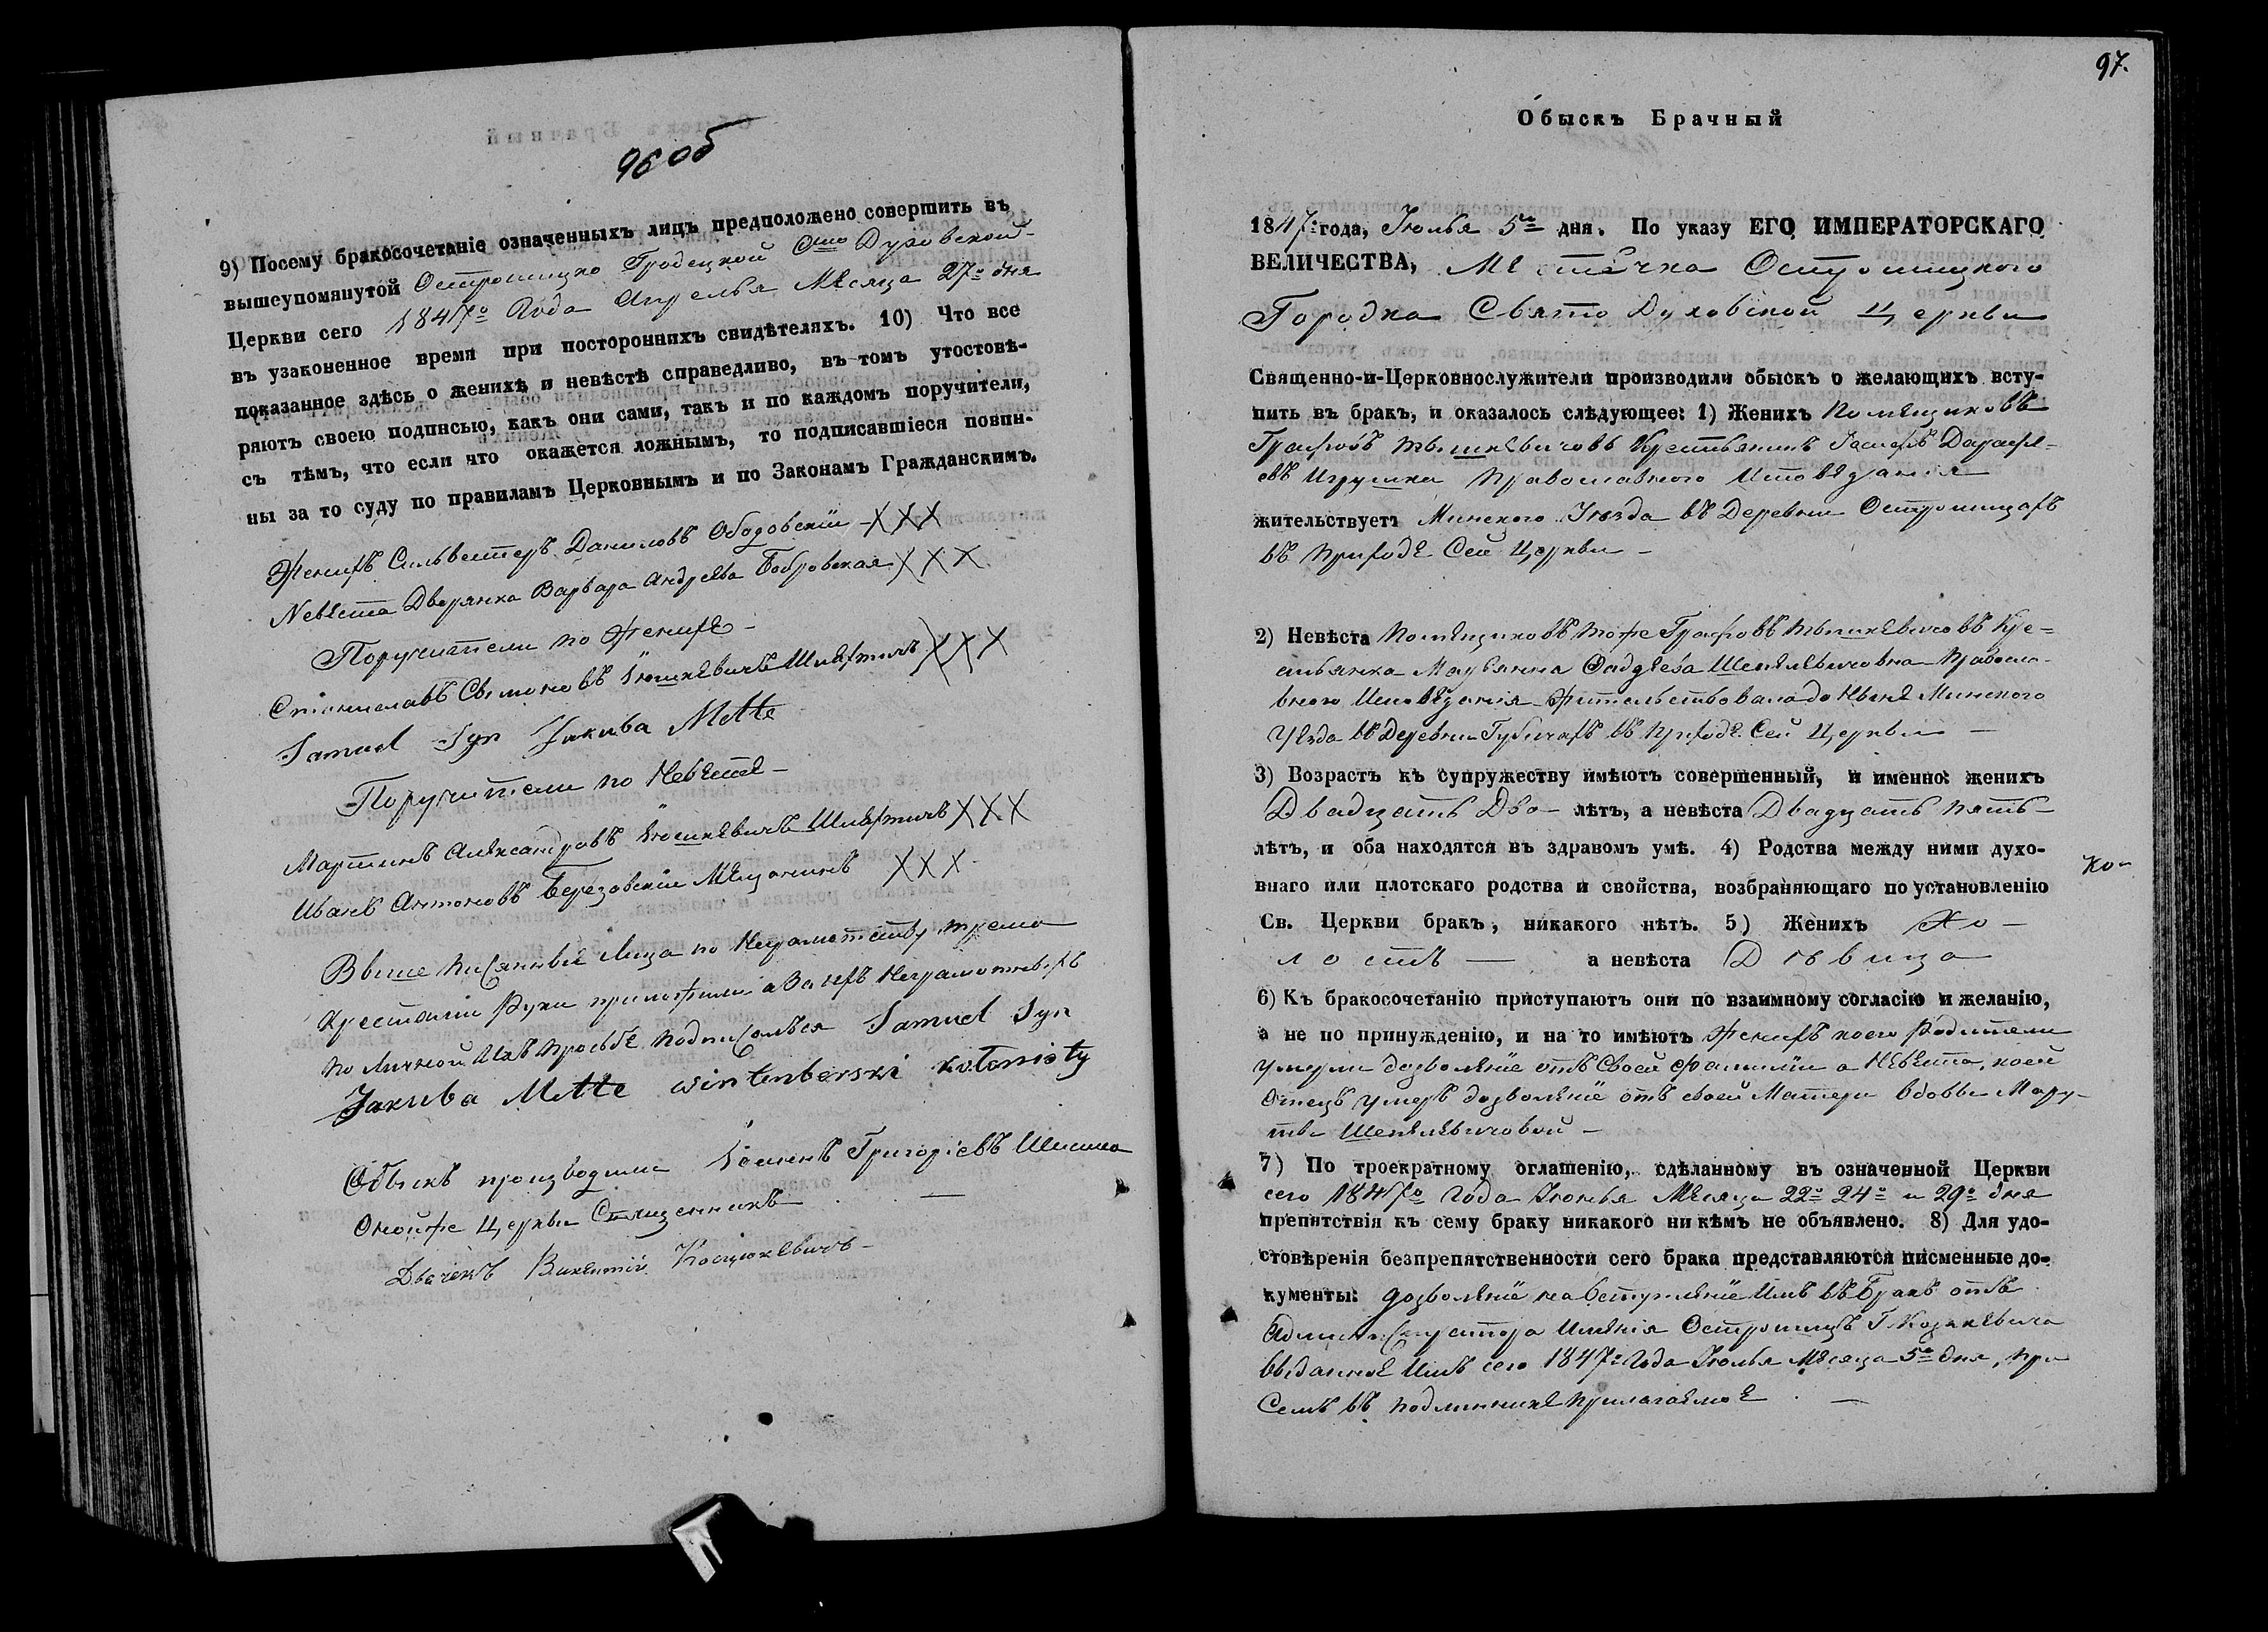 96 об
9) Посему бракосочетаніе означенныхъ лицъ предположено совершить въ
вышеупомянутой Острошицко Гродецкой Сто Духовской
Церкви сего 1847го Года Апрелья Месяца 27го дня
въ узаконенное время при постороннихъ свидѣтеляхъ. 10) Что все
показанное здѣсь о женихѣ и невѣстѣ справедливо, въ томъ утостовѣ-
ряютъ своею подписью, какъ они сами, такъ и по каждомъ поручители,
съ тѣмъ, что если что окажется ложнымъ, то подписавшіеся повин-
ны за то суду по правиламъ Церковнымъ и по Законамъ Гражданскимъ.
Женихъ Сильвестеръ Даниловъ Ободовскій XXX
Невеста Дворянка Варвара Андреева Бобровская XXX
Поручители по Женихе
Станиславъ Юшкевичъ Шляхтичъ XXX
Samuel Syn Jakuba Mette
Поручители по Невесте
Мартинъ Александровъ Юшкевичъ Шляхтичъ XXX
Иванъ Антоновъ Березовскій Мещанинъ XXX
Выше писанные Лица по Неграмотству тремя
крестами Руки приложили а За ихъ Неграмотныхъ
по Личной Ихъ прозьбе подписалъся Samuel Syn
Jakuba Mette wintenberski kolonisty
Обыскъ производили Григоріевъ
Онойже Церкви Священникъ
Дьячекъ Викентій Костюкевичъ
97.
Обыскъ Брачный
1847: года, Іюлья 5го дня. По указу ЕГО ИМПЕРАТОРСКАГО
ВЕЛИЧЕСТВА, Местечка Острошицкого
Городка Свято Духовской Церкви
Священно-и-Церковнослужители производили обыскъ о желающихъ всту-
пить въ бракъ, и оказалось слѣдующее: 1) Женихъ Помещиковъ
Графовъ Тышкевичовъ Крестьянинъ
Православного Исповеданія
жительствуетъ Минского Уезда въ Деревни Острошицахъ
въ приходе Сей Церкви
2) Невѣста Помещиковъ тоже Графовъ Тышкевичовъ Кре=
стьянка Марьянна Фадеева Шепелевичовна Правосла-
вного Исповеданія Жительствовала до Ныне Минского
Уезда въ Деревни Губичахъ въ приходе Сей Церкви
3) Возрастъ къ супружеству имѣютъ совершенный, и именно: женихъ
Двадцать Два лѣтъ, а невѣста Двадцать пять
лѣтъ, и оба находятся въ здравомъ умѣ. 4) Родства между ними духо-
внаго или плотскаго родства и свойства, возбраняющаго по установленію
Св. Церкви бракъ, никакого нѣтъ. 5) Женихъ Хо-
лостъ а невѣста Девица
6) Къ бракосочетанію приступаютъ они по взаимному согласію и желанію,
а не по принужденію, и на то имѣютъ Женихъ коего Родители
умерли дозволеніе отъ своей Фамиліи а Невеста, коей
Отецъ умеръ дозволеніе отъ своей Матери вдовы Мар-
ты Шепелевичовой
7) По троекратному оглашенію, сдѣланному въ означенной Церкви
сего 1847го Года Іюнья Месяца 22го 24го и 29го дня
препятствія къ сему браку никакого никѣмъ не объявлено. 8) Для удо-
стовѣренія безпрепятственности сего брака представляются писменные до-
кументы: дозволеніе на вступленіе Имъ въ Бракъ отъ
Администратора Именія Острошицъ Г. Козакевича
выданное Имъ сего 1847го Года Іюлья Месяца 5го дня, при
Семъ въ подлиннике прилагаемое